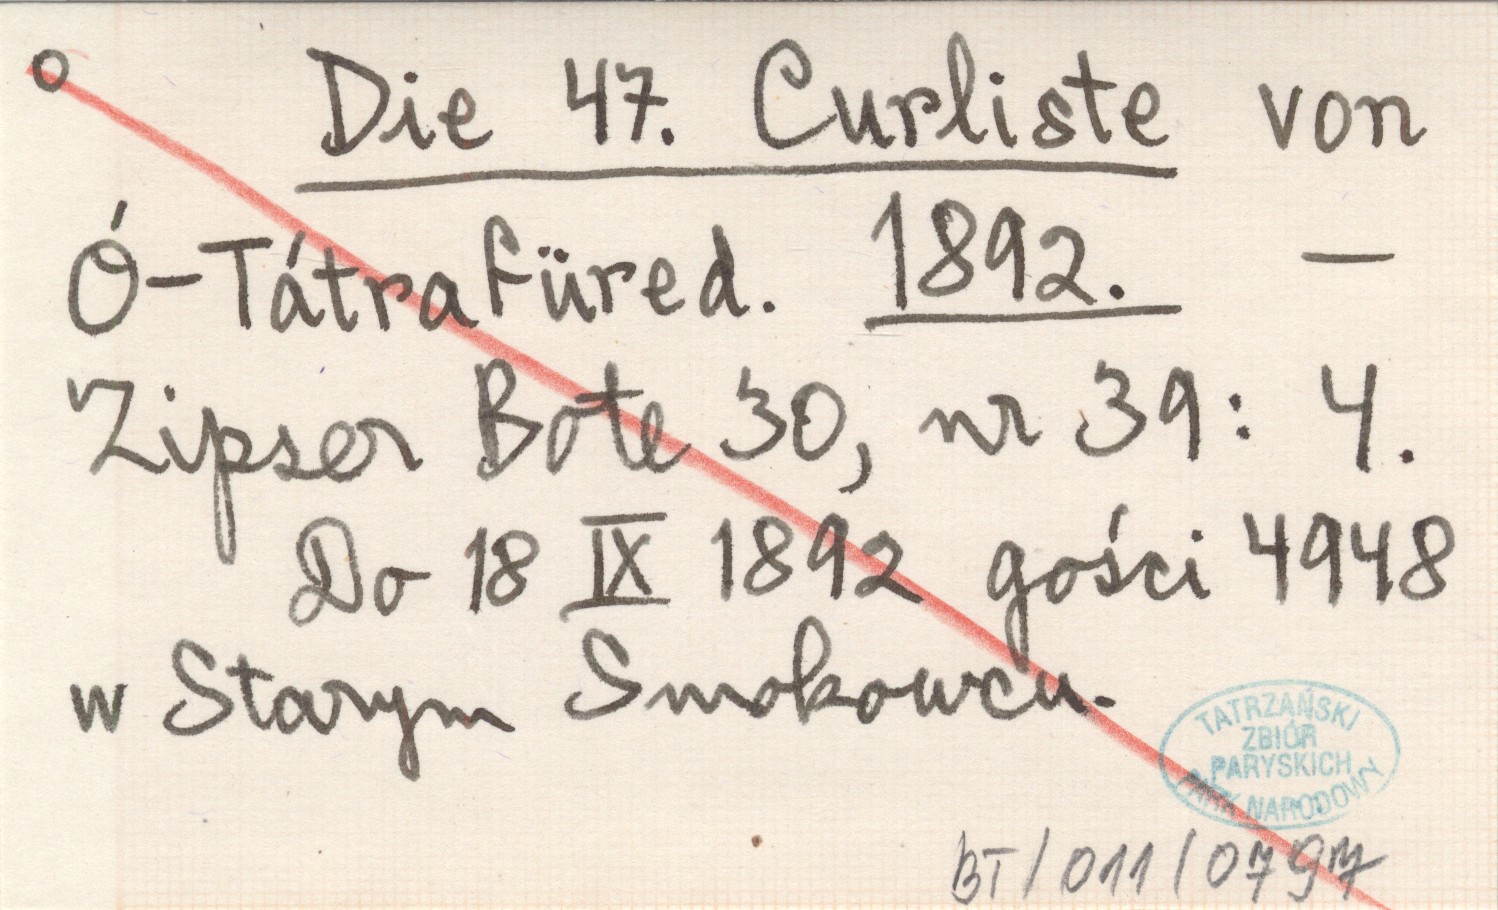 Die 47. Curliste von
Ó-Tátrafüred. 1892. —
Zipser Bote 30, nr 39: 4.
Do 18 IX 1892 gości 4948
w Starym Smokowcu.
TATRZAŃSKI
ZBIÓR
PARYSKICH
PARK NARODOWY
BT/011/0797